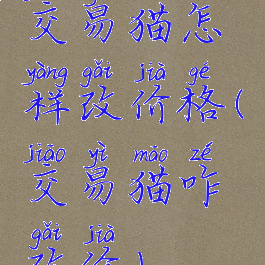 交易猫怎
yàng gǎi jià gé
样改价格(
jiāo yì māo zé
交易猫咋
gǎi jià
改价)